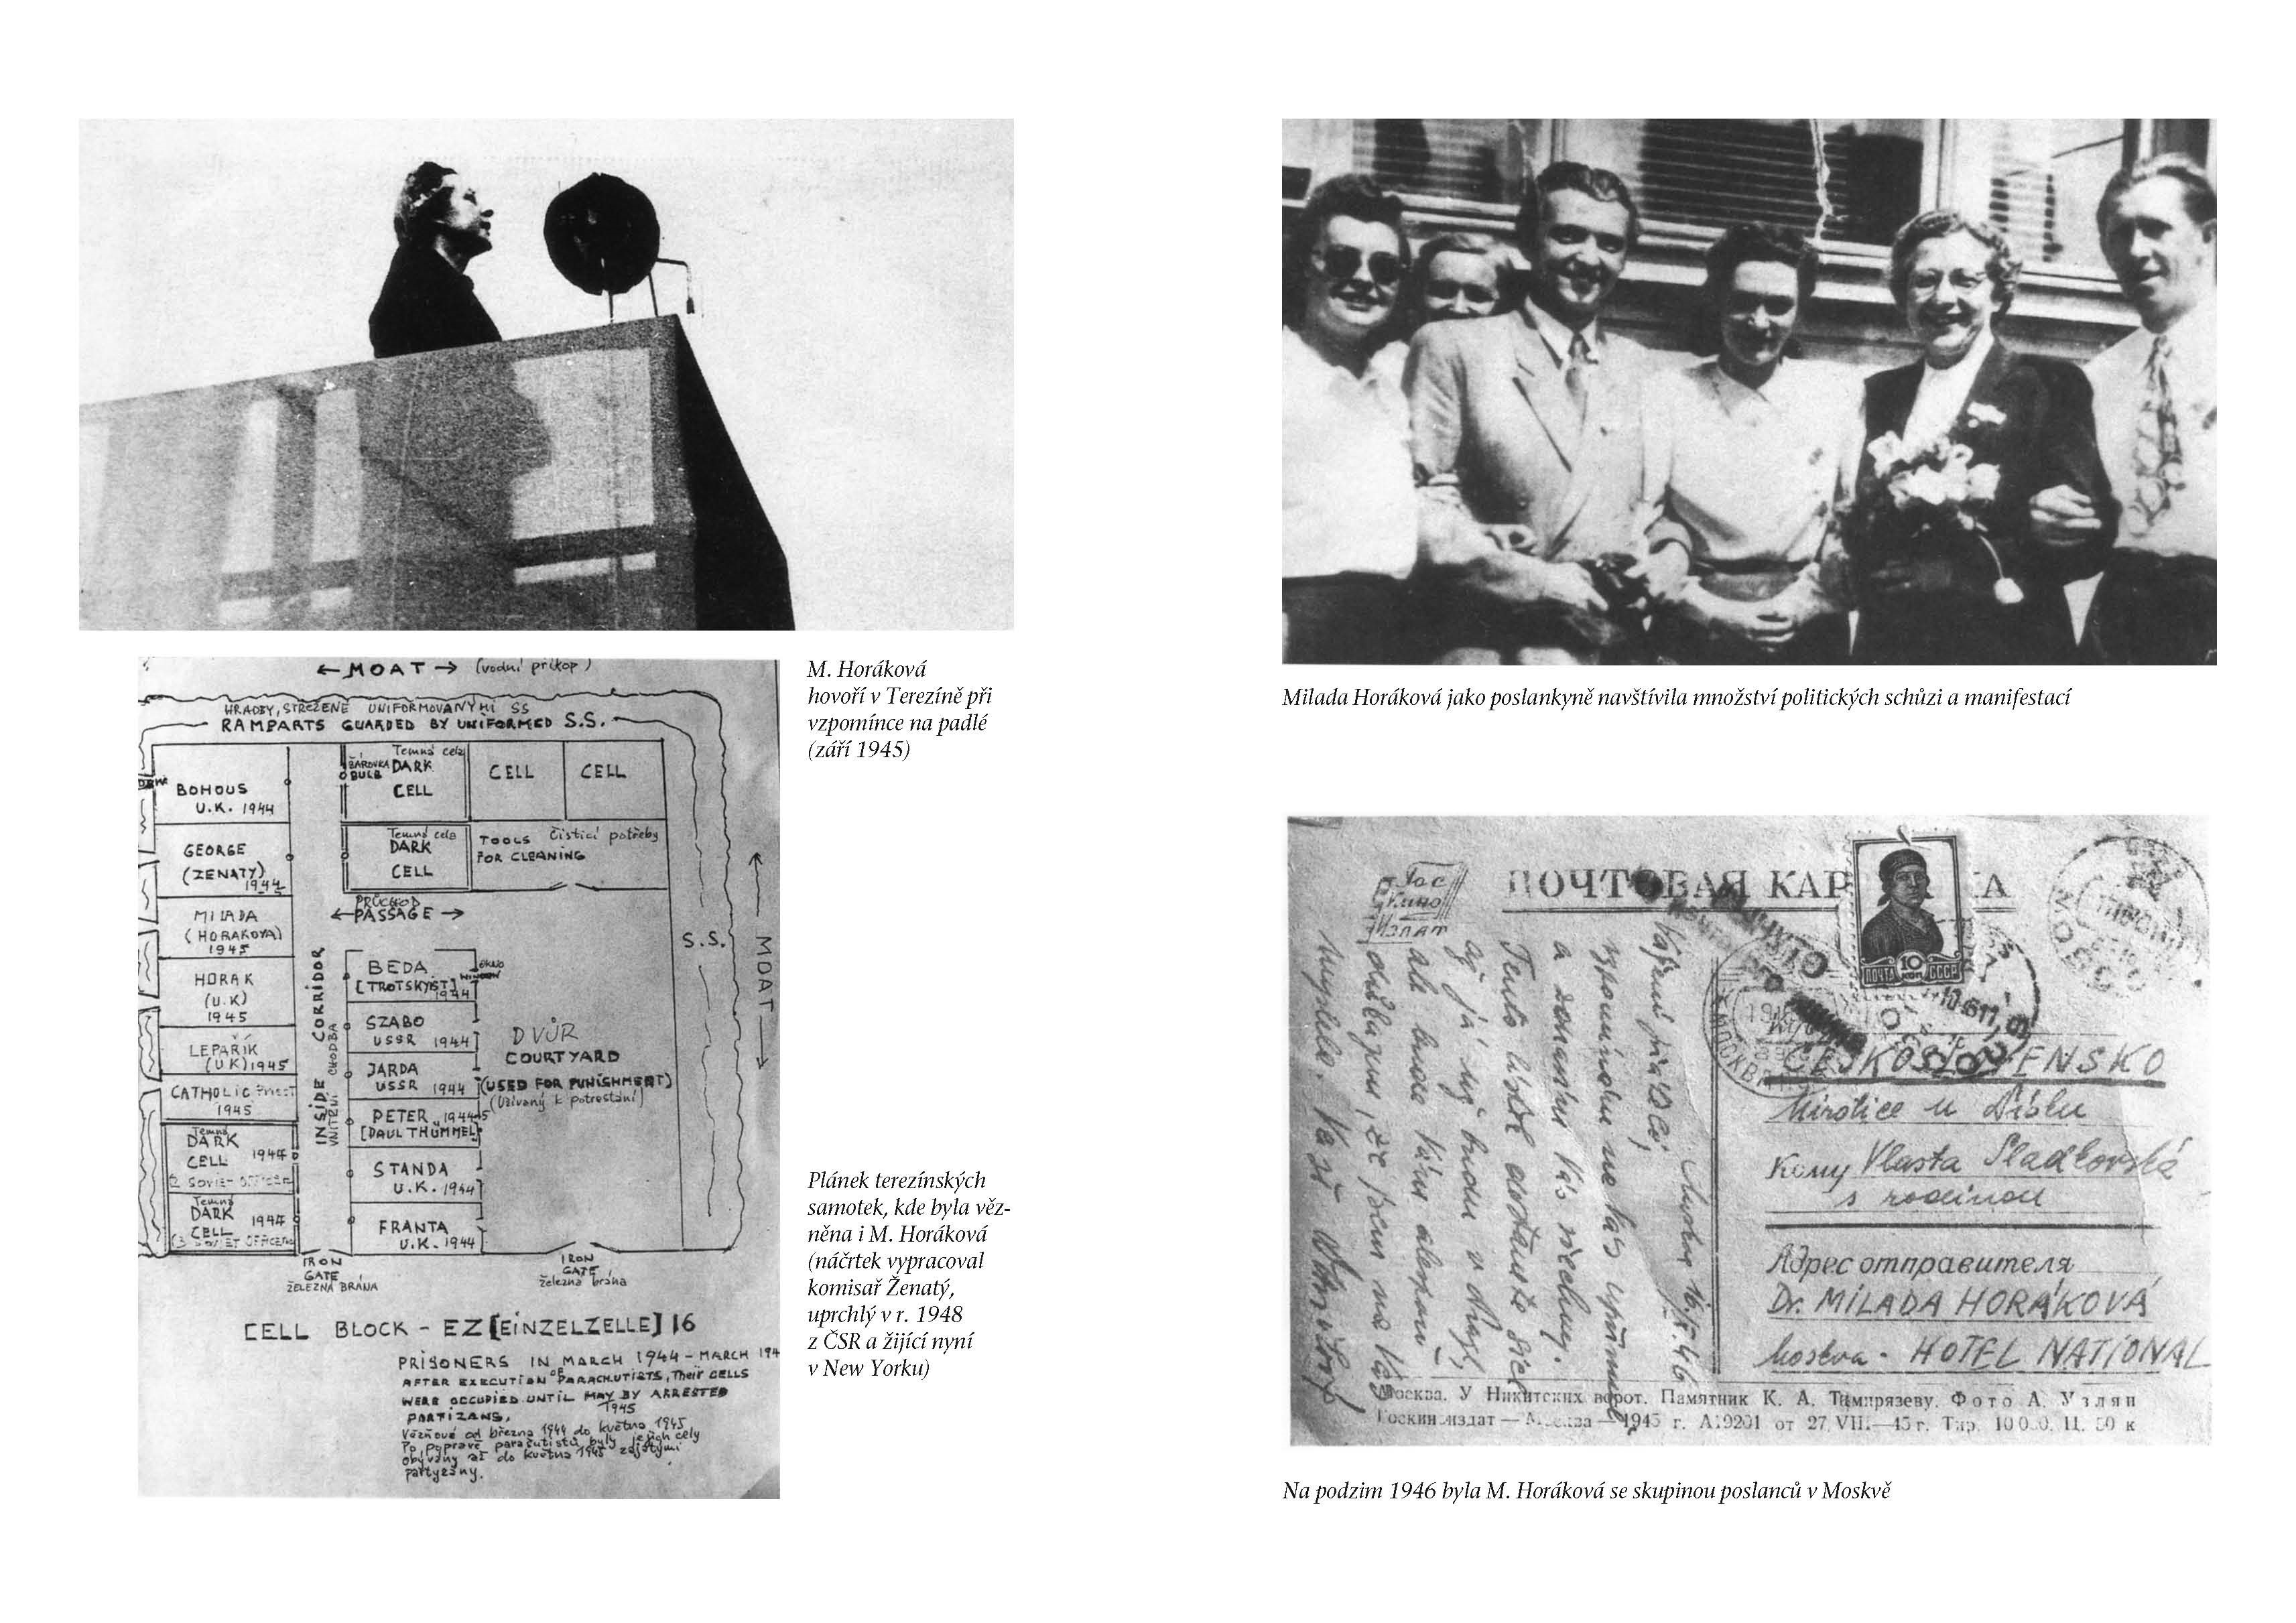 M. Horáková
hovoří v Terezíně při
vzpomínce na padlé
(září 1945)
← MOAT → (vodní příkop)
HRADBY, STŘEŽENÉ UNIFORMOVANÝMI SS
RAMPARTS GUARDED BY UNIFORMED S.S.
BOHOUS
U.K. 1944
GEORGE
(ZENATY)
1944
MILADA
(HORAKOVA)
1945
HORAK
(U.K)
1945
LEPAŘÍK
(U.K) 1945
CATHOLIC Priest
1945
Temná
DARK
CELL 1944
2 SOVIET OFFICERS
Temná
DARK 1944
CELL
(3 SOVIET OFFICERS
INSIDE CORRIDOR
VNITŘNÍ CHODBA
Temná cela
ŽÁROVKA DARK
BULB
CELL
CELL
CELL
Temná cela
DARK
CELL
TOOLS čistící potřeby
FOR CLEANING
PRŮCHOD
← PASSAGE →
BEDA
[TROTSKYIST]
1944
OKNO
WINDOW
SZABO
USSR 1944
JARDA
USSR 1944
PETER 1944-5
[PAUL THÜMMEL]
STANDA
U.K. 1944
FRANTA
U.K. 1944
DVŮR
COURTYARD
(USED FOR PUNISHMENT)
(Užívaný k potrestání)
S.S.
← MOAT →
IRON
GATE
ŽELEZNÁ BRÁNA
IRON
GATE
železná brána
CELL BLOCK - EZ [EINZELZELLE] 16
PRISONERS IN MARCH 1944 - MARCH 194
AFTER EXECUTION OF PARACHUTISTS, Their CELLS
WERE OCCUPIED UNTIL MAY BY ARRESTED
1945
PARTIZANS,
Vězňové od března 1944 do května 1945
Po popravě parašutistů byly jejich cely
obývány až do května 1945 zajatými
partyzány.
Plánek terezínských
samotek, kde byla věz-
něna i M. Horáková
(náčrtek vypracoval
komisař Ženatý,
uprchlý v r. 1948
z ČSR a žijící nyní
v New Yorku)
Milada Horáková jako poslankyně navštívila množství politických schůzi a manifestací
Гос
Кино
Издат
ПОЧТОВАЯ КАР КА
ПОЧТА 10 КОП СССР
Vážení přátelé,
vzpomínám na Vás upřímně
a zdravím Vás všechny.
Tento lístek dostanete sice
až já už budu v Praze,
ale bude Vám alespoň
důkazem, že jsem na Vás
myslela.
ČESKOSLOVENSKO
Mirotice u Písku
Кому Vlasta Sladkovská
s rodinou
Адрес отправителя
Dr. MILADA HORÁKOVÁ
Moskva - HOTEL NATIONAL
Москва. У Никитских ворот. Памятник К. А. Тимирязеву. Фото А. Узлян
Госкиноиздат — Москва — 1945 г. А19201 от 27 VIII—45 г. Тир. 10 000. Ц. 50 к
Na podzim 1946 byla M. Horáková se skupinou poslanců v Moskvě